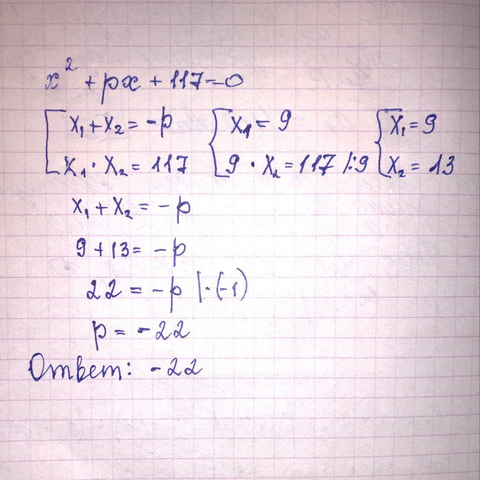 x² + px + 117 = 0
[ x₁ + x₂ = -p { x₁ = 9 { x₁ = 9
x₁ · x₂ = 117 9 · x₂ = 117 |:9 x₂ = 13
x₁ + x₂ = -p
9 + 13 = -p
22 = -p |·(-1)
p = -22
Ответ: -22